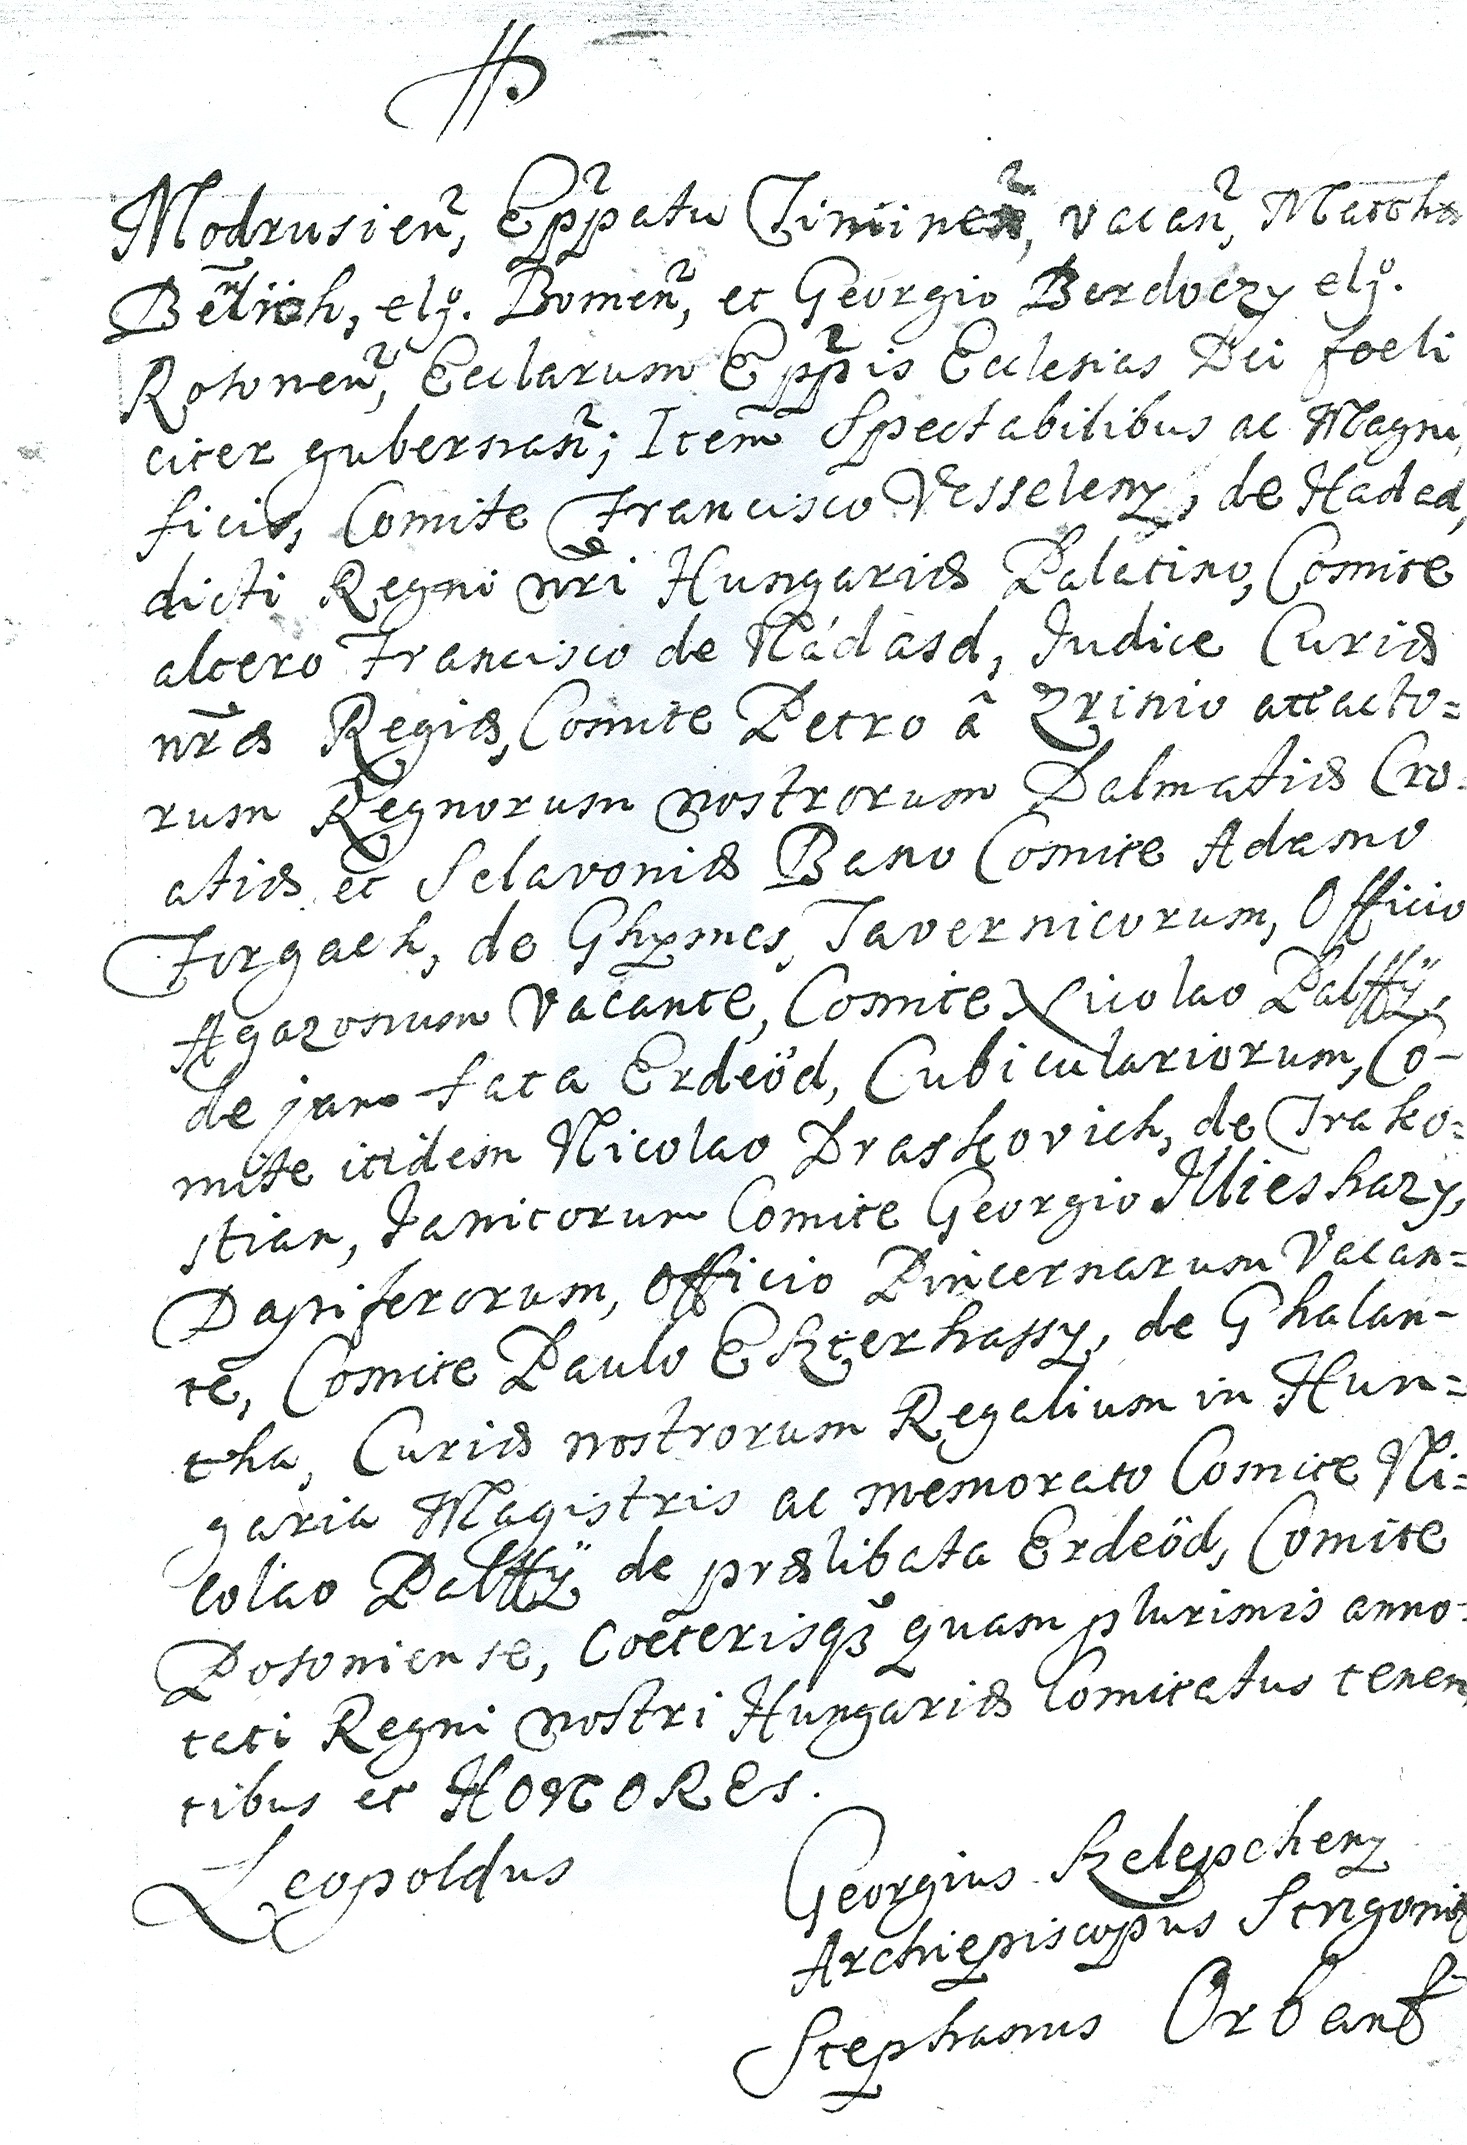 Modrusien̄, Eppatu Tininen̄, vacan̄, Matth
Ben̄lich, elꝭ. Bomen̄, et Georgio Berdoczy elꝭ.
Rosonen̄, Ecclarum Eppis Ecclesias Dei foeli
citer gubernan̄; Item Spectabilibus ac Magni,
ficis, Comite Francisco Vesseleny, de Hadad,
dicti Regni nr̄i Hungariæ Palatino, Comite
altero Francisco de Nádasd, Iudice Curiæ
nr̄æ Regiæ, Comite Petro â Zrinio attacto=
rum Regnorum nostrorum Dalmatiæ Cro=
atiæ et Sclavoniæ Bano Comite Adamo
Forgach, de Ghymes, Tavernicorum, Officio
Agazonum Vacante, Comite Nicolao Palffÿ,
de jam fata Erdeöd, Cubiculariorum, Co-
mite itidem Nicolao Draskovich, de Trako=
stian, Janitorum Comite Georgio Illieshazy,
Dapiferorum, Officio Pincernarum Vacan=
te, Comite Paulo Eszterhassy, de Ghalan-
tha, Curiæ nostrorum Regalium in Hun=
garia Magistris ac memorato Comite Ni=
colao Palffÿ de prælibata Erdeöd, Comite
Posoniense, Coeterisqꝫ quam plurimis anno=
tati Regni nostri Hungariæ Comitatus tenen,
tibus et HONORES.
Leopoldus
Georgius Szelepcheny
Archiepiscopus Strigonie
Stephanus Orban